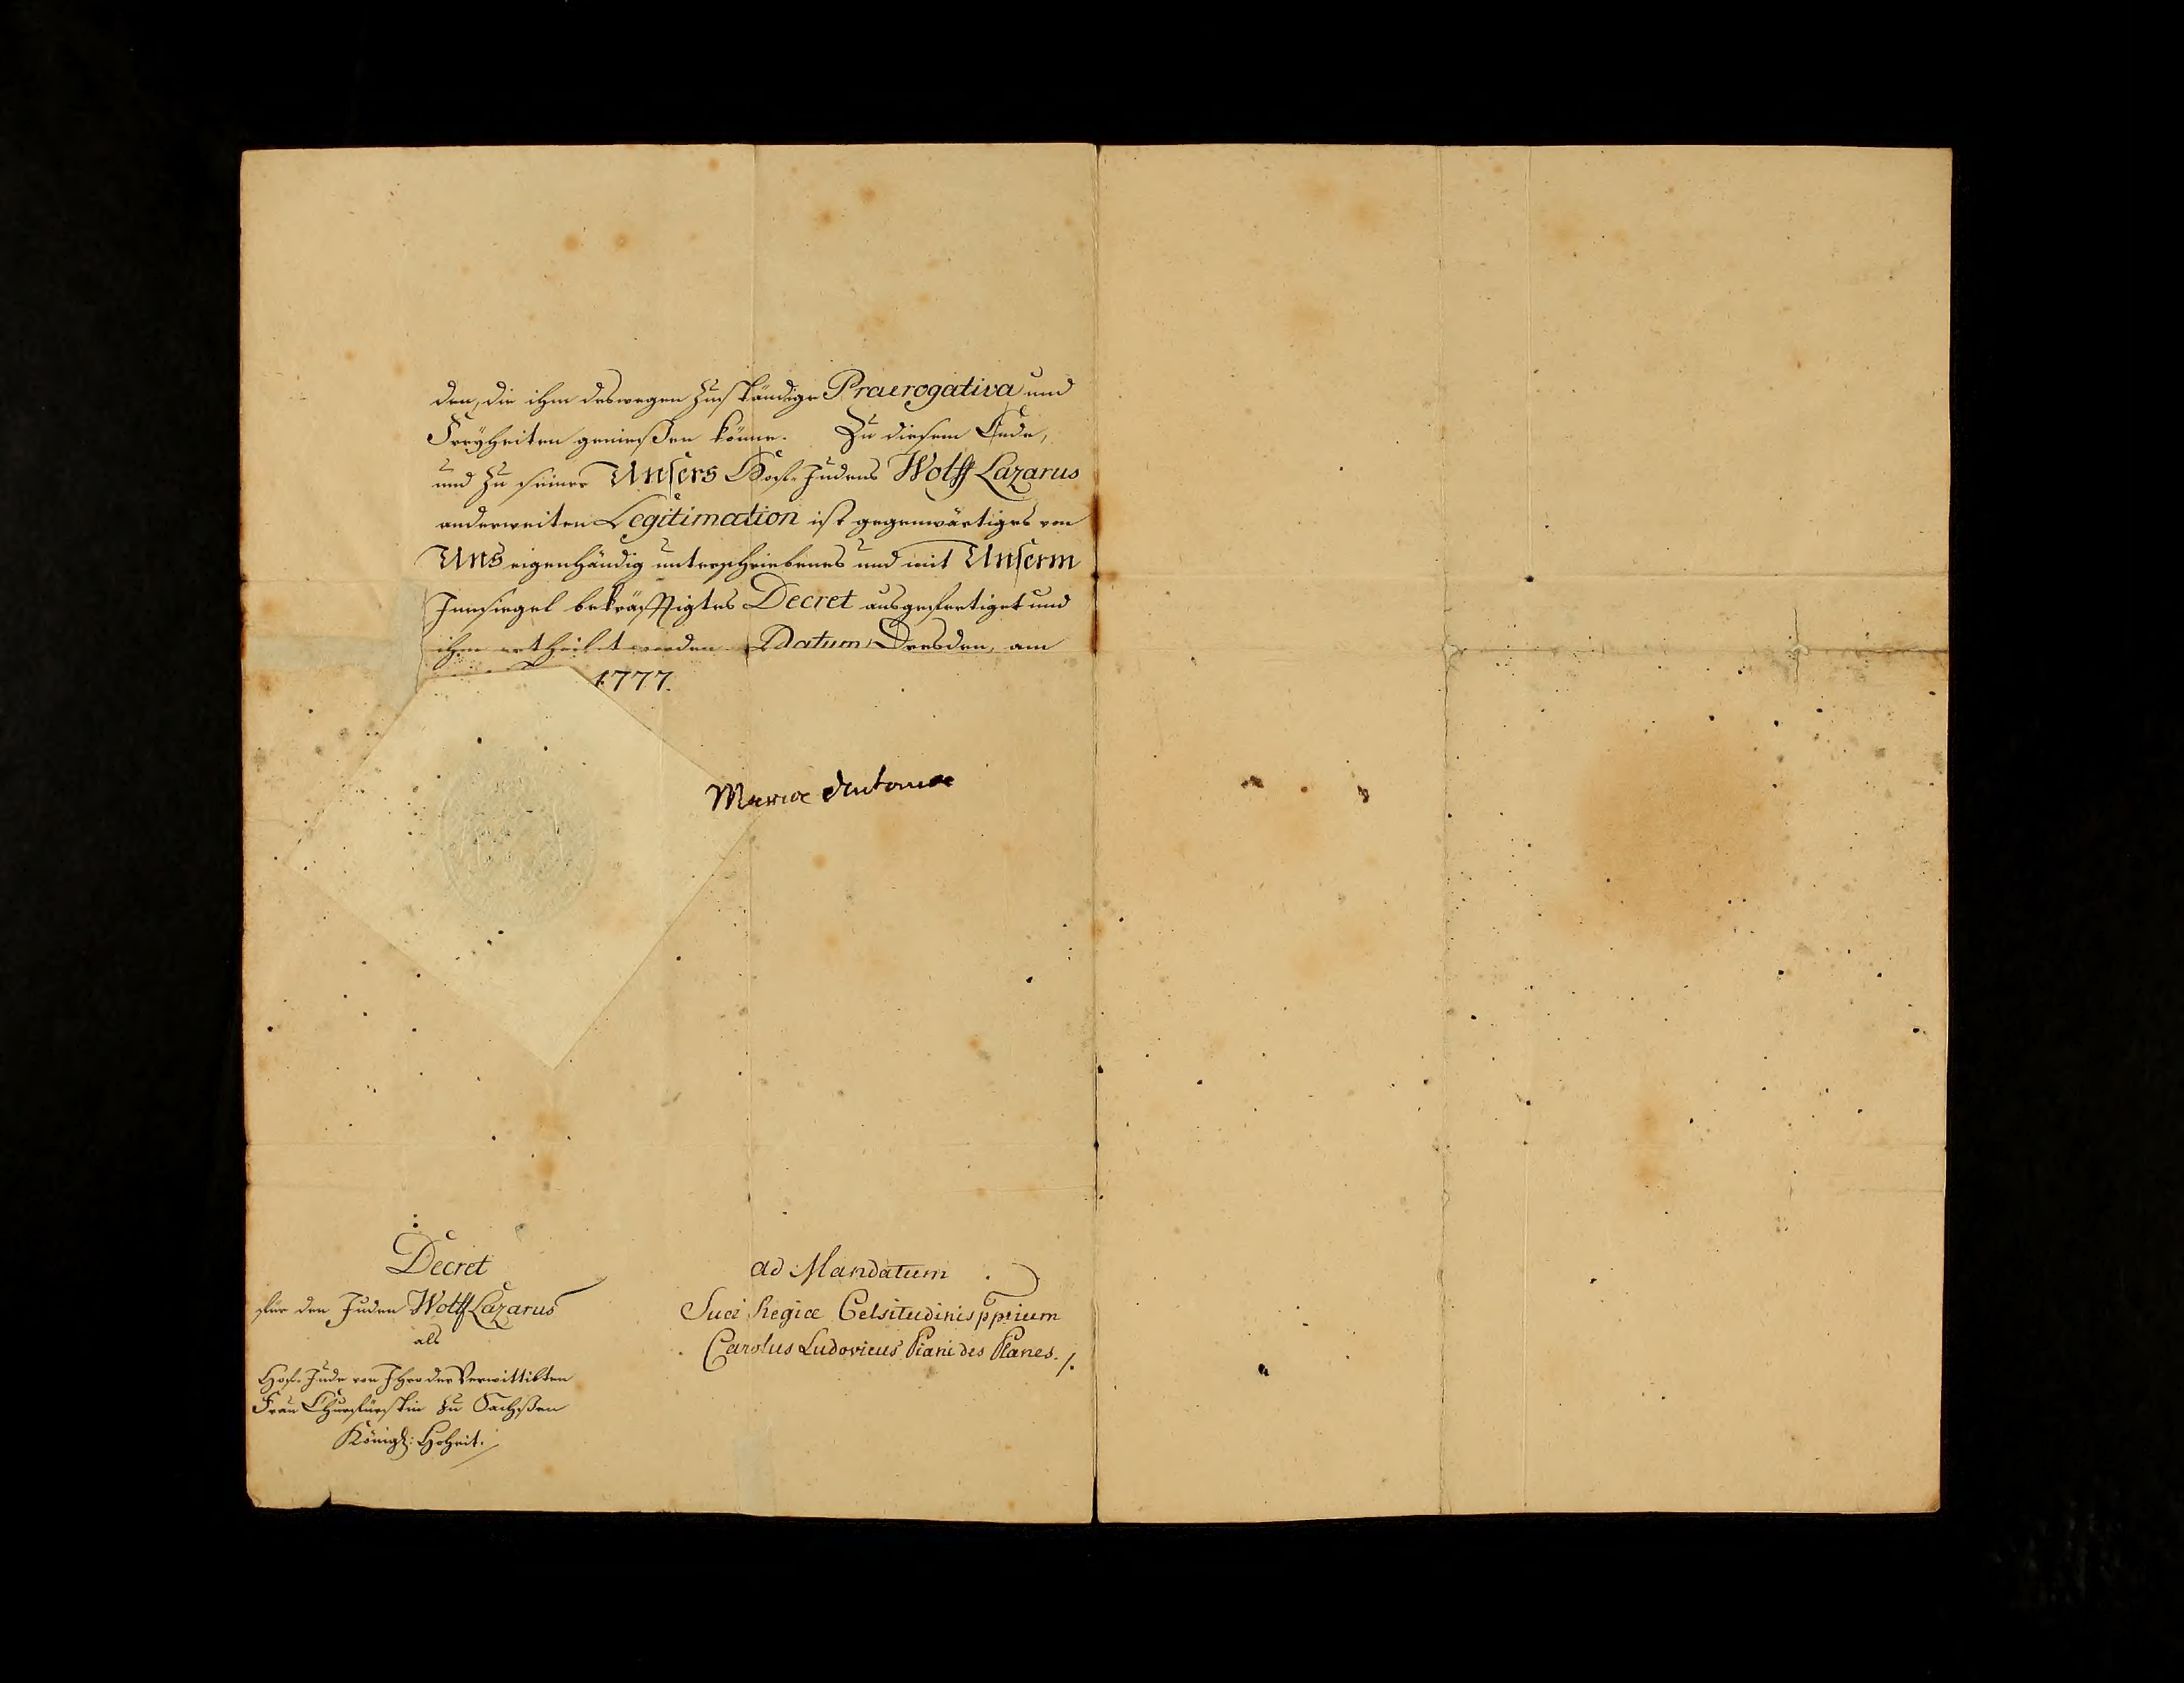 den, die ihm deswegen zuständige Praerogativa und
Freyheiten genießen könne. Zu diesem Ende,
und zu seiner Unsers Hof-Judens Wolff Lazarus
anderweiten Legitimation ist gegenwärtiges von
Uns eigenhändig unterschriebenes und mit Unserm
Innsiegel bekräfftigtes Decret ausgefertiget und
ihm ertheilet worden. Datum Dresden, am
1777.
Maria Antonia
Decret
für den Juden Wolff Lazarus
als
Hof-Jude von Ihro der Verwittibten
Frau Churfürstin zu Sachßen
Königl: Hoheit.
ad Mandatum
Suae Regiae Celsitudinis pprium
Carolus Ludovicus Piani des Planes.